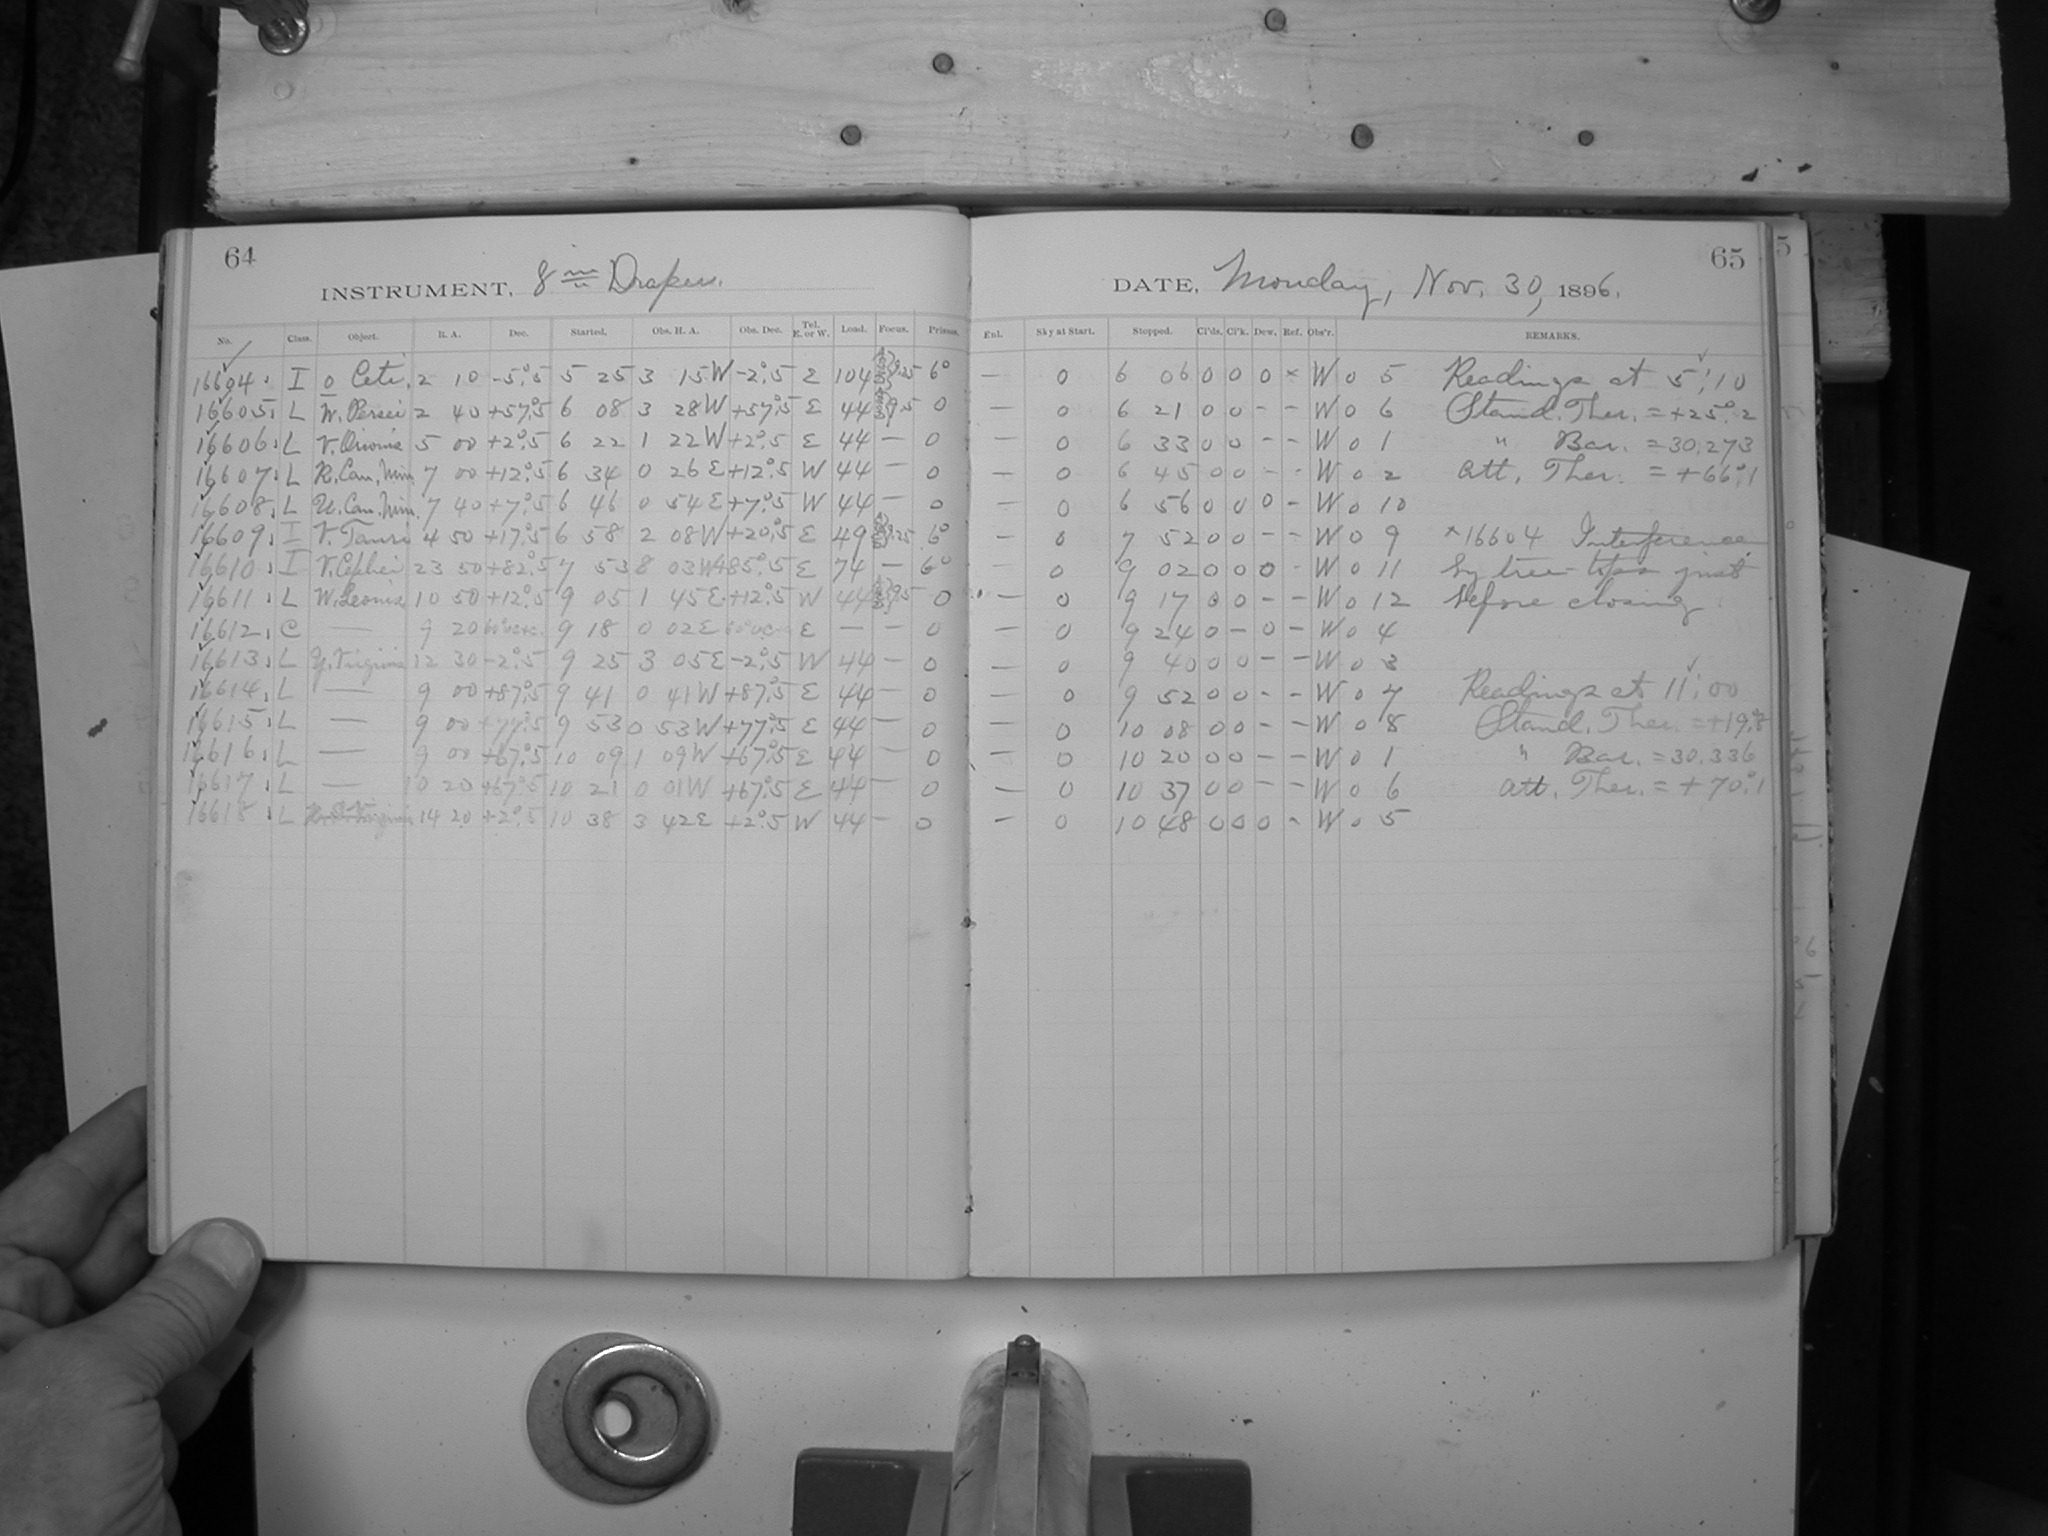 64
INSTRUMENT, 8 in Draper.
No. Class. Object. R. A. Dec. Started. Obs. H. A. Obs. Dec. Tel. E. or W. Load. Focus. Prisms.
16604. I o Ceti. 2 10 -5°.5 5 25 3 15W -2°.5 E 104 6°
16605. L W. Persei 2 40 +57°.5 6 08 3 28W +57°.5 E 44 0
16606. L V. Orionis 5 00 +2°.5 6 22 1 22W +2°.5 E 44 — 0
16607. L R. Can. Min. 7 00 +12°.5 6 34 0 26E +12°.5 W 44 — 0
16608. L U. Can. Min. 7 40 +7°.5 6 46 0 54E +7°.5 W 44 — 0
16609. I V. Tauri 4 50 +17°.5 6 58 2 08W +20°.5 E 49 6°
16610. I V. Cephei 23 50 +82°.5 7 53 8 03W +85°.5 E 74 — 6°
16611. L W. Leonis 10 50 +12°.5 9 05 1 45E +12°.5 W 44 0
16612. C — 9 20 9 18 0 02E E — — 0
16613. L Y. Virginis 12 30 -2°.5 9 25 3 05E -2°.5 W 44 — 0
16614. L — 9 00 +87°.5 9 41 0 41W +87°.5 E 44 — 0
16615. L — 9 00 +77°.5 9 53 0 53W +77°.5 E 44 — 0
16616. L — 9 00 +67°.5 10 09 1 09W +67°.5 E 44 0
16617. L — 10 20 +67°.5 10 21 0 01W +67°.5 E 44 — 0
16618. L Virginis 14 20 +2°.5 10 38 3 42E +2°.5 W 44 — 0
65
DATE, Monday, Nov. 30, 1896.
Enl. Sky at Start. Stopped. Cl'ds. Cl'k. Dew. Ref. Obs'r. REMARKS.
— 0 6 06 0 0 0 × W 0 5 Readings at 5:10
— 0 6 21 0 0 - - W 0 6 Stand. Ther. = +25°.2
— 0 6 33 0 0 - - W 0 1 " Bar. = 30.273
— 0 6 45 0 0 - - W 0 2 Att. Ther. = +66°.1
— 0 6 56 0 0 0 - W 0 10
— 0 7 52 0 0 - - W 0 9 ×16604 Interference
— 0 9 02 0 0 0 - W 0 11 by tree-tops just
— 0 9 17 0 0 - - W 0 12 before closing
— 0 9 24 0 - 0 - W 0 4
— 0 9 40 0 0 - - W 0 3
— 0 9 52 0 0 - - W 0 7 Readings at 11:00
— 0 10 08 0 0 - - W 0 8 Stand. Ther. = +19°.8
— 0 10 20 0 0 - - W 0 1 " Bar. = 30.336
— 0 10 37 0 0 - - W 0 6 Att. Ther. = +70°.1
— 0 10 48 0 0 0 - W 0 5